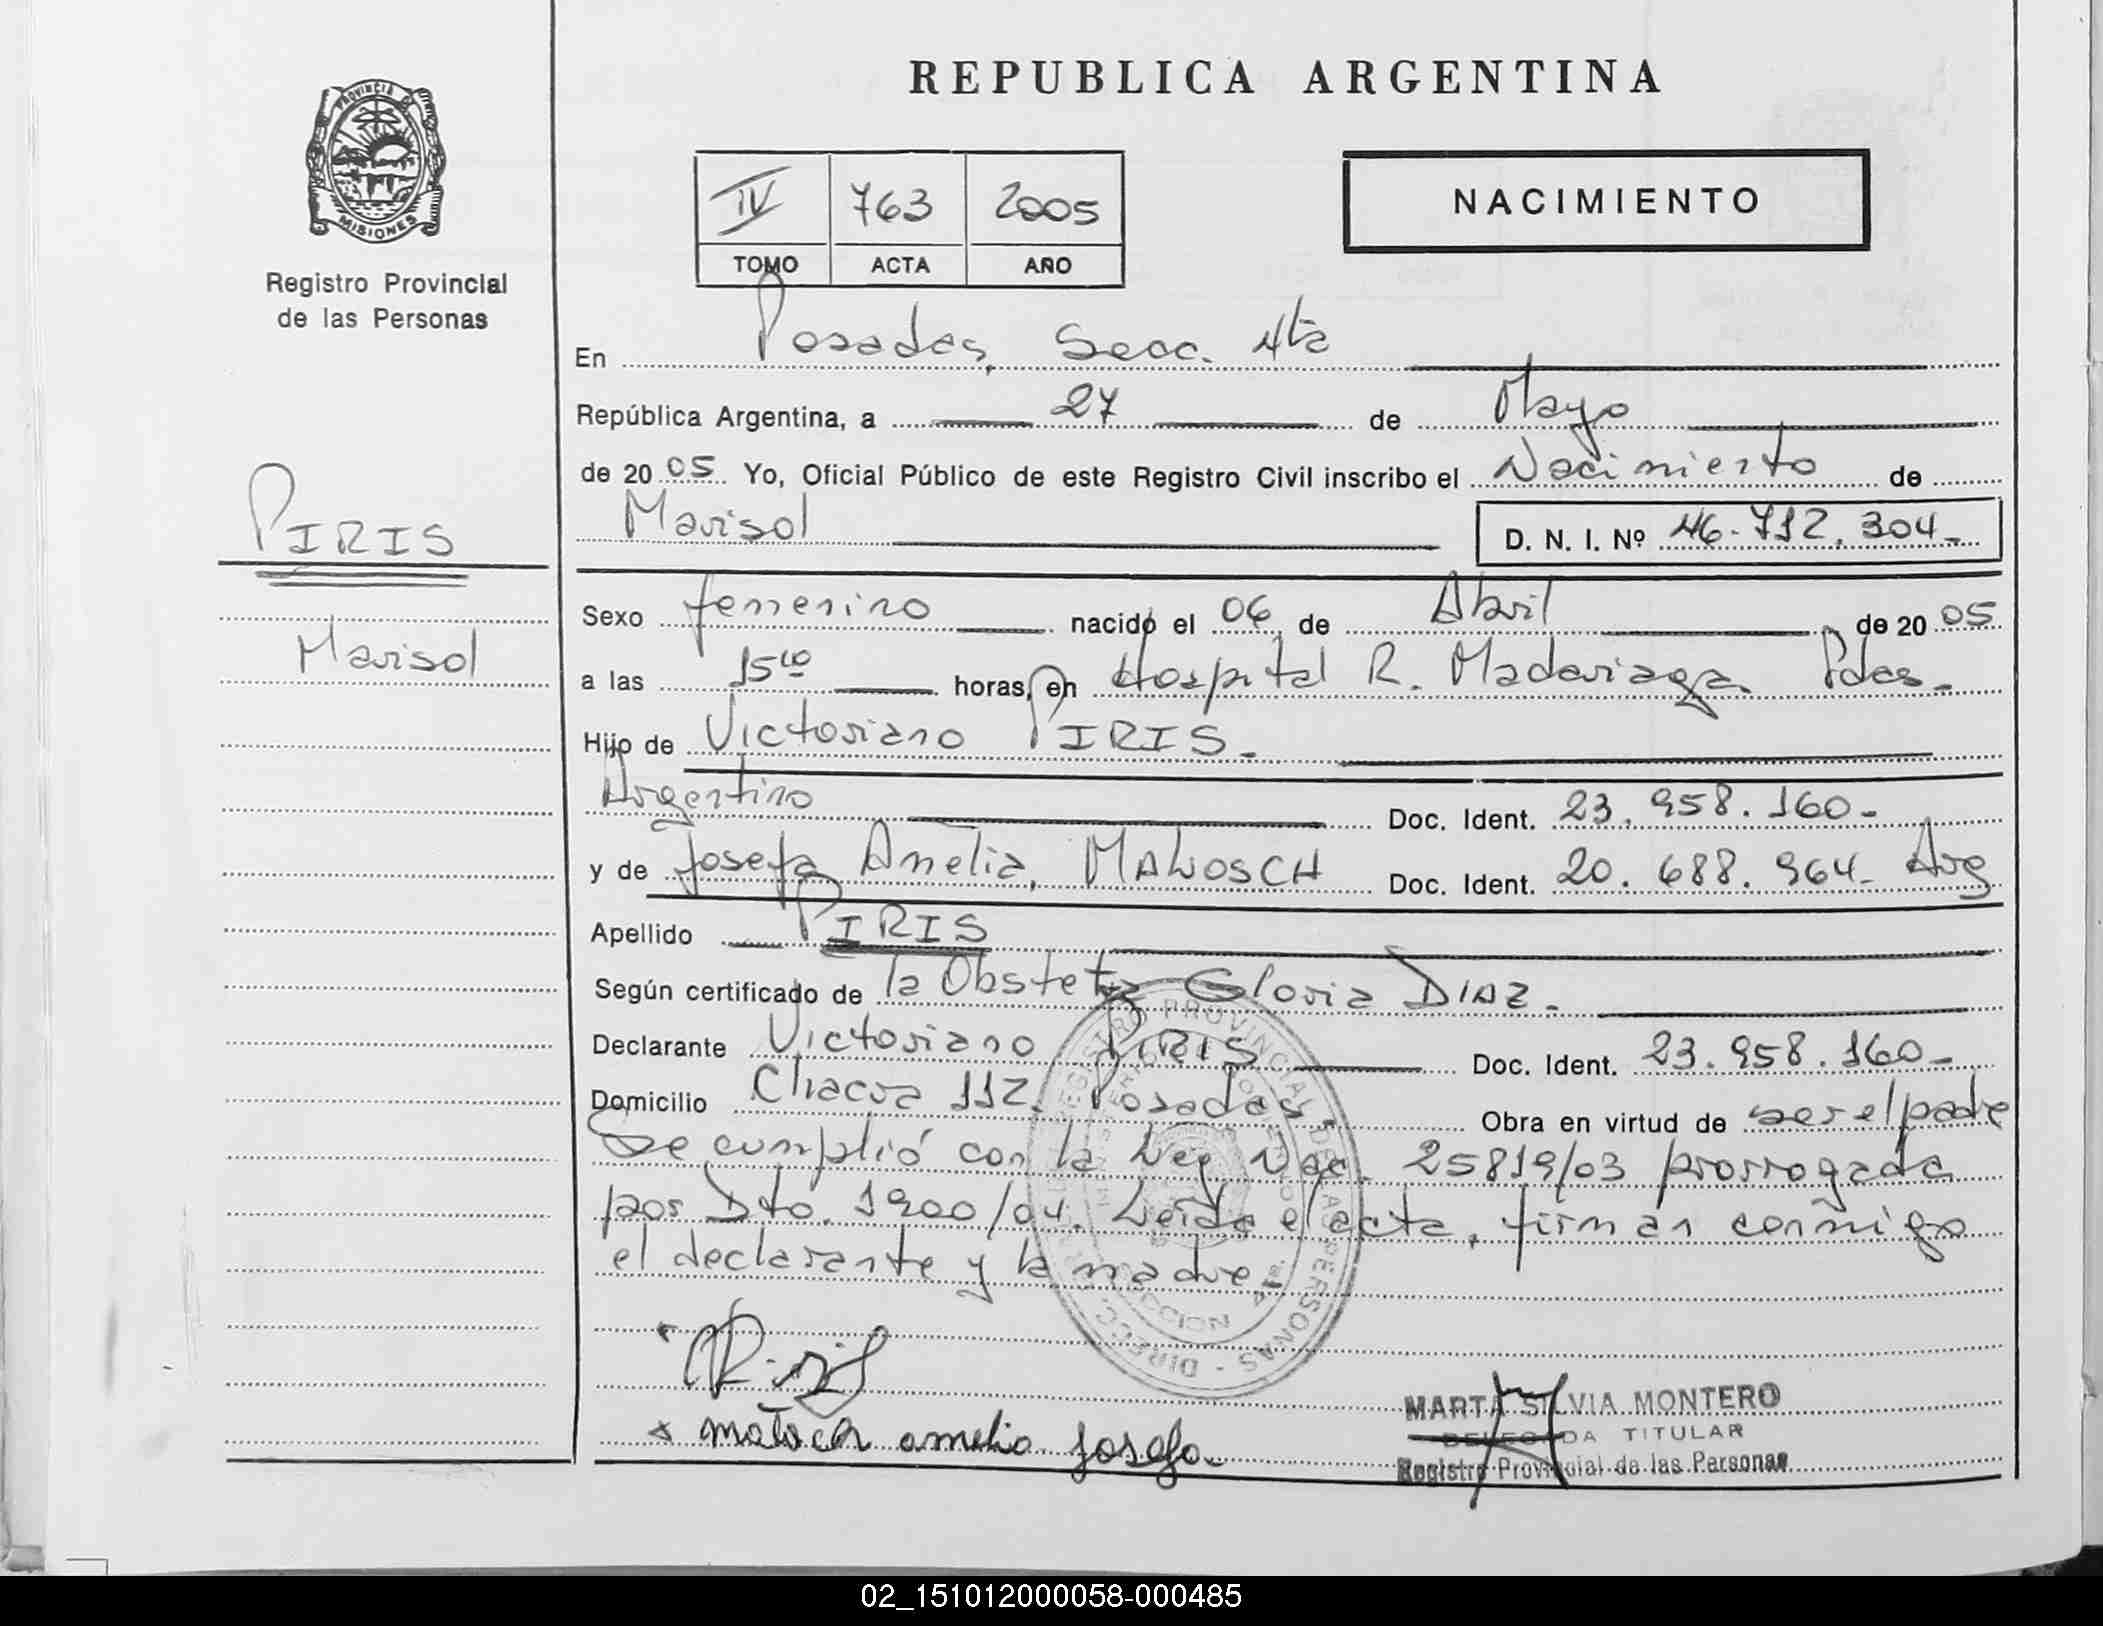 REPUBLICA ARGENTINA
PROVINCIA DE MISIONES
Registro Provincial
de las Personas
IV 763 2005
TOMO ACTA AÑO
NACIMIENTO
En Posadas, Secc. 4ta
República Argentina, a 27 de Mayo
de 2005 Yo, Oficial Público de este Registro Civil inscribo el Nacimiento de
Marisol D. N. I. Nº 46.712.304
PIRIS
Marisol
Sexo femenino nacido el 06 de Abril de 2005
a las 15 10 horas, en Hospital R. Madariaga Pdas.
Hijo de Victoriano PIRIS.
Argentino Doc. Ident. 23.958.160-
y de Josefa Amelia, Doc. Ident. 20.688.964- Arg
Apellido PIRIS
Según certificado de la Obsteta Gloria DIAZ.
Declarante Victoriano PIRIS Doc. Ident. 23.958.160-
Domicilio Chacra 112. Posadas. Obra en virtud de ser el padre
Se cumplió con la Ley Nac. 25819/03 prorrogada
por Dto. 1900/04. Leída el acta, firman conmigo
el declarante y la madre-
REGISTRO PROVINCIAL DE LAS PERSONAS - DIRECC
Piris
amelia josefa
MARTA SILVIA MONTERO
DELEGADA TITULAR
Registro Provincial de las Personas
02_151012000058-000485